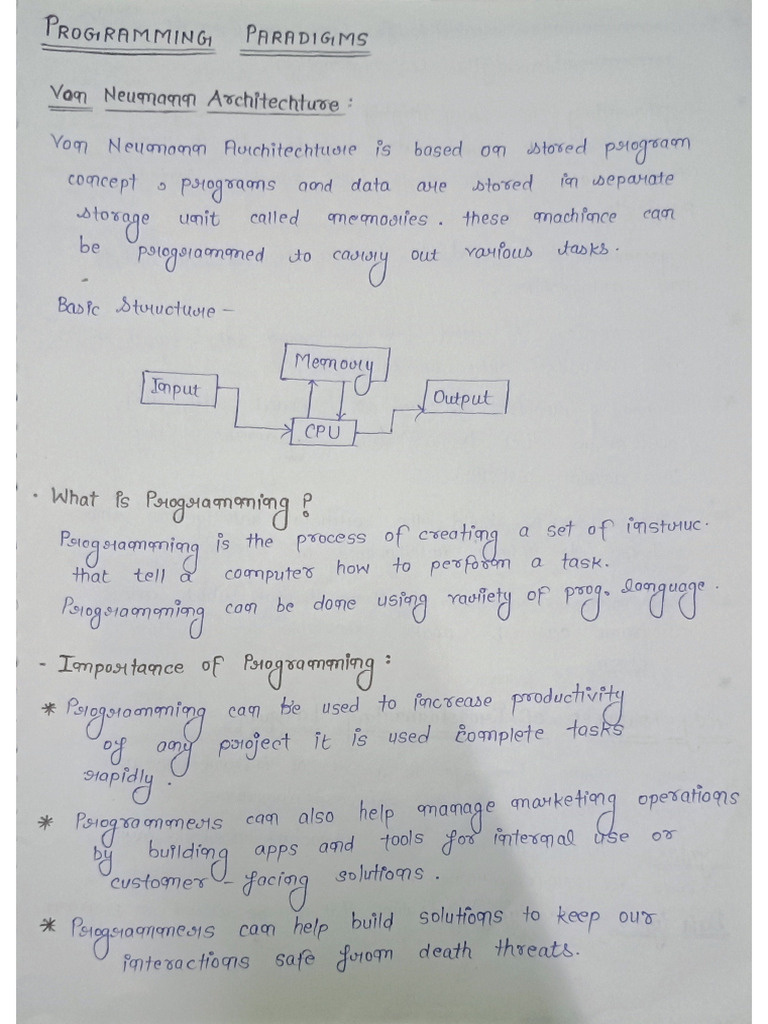 PROGRAMMING PARADIGMS
Von Neumann Architechture :
Von Neumann Architechture is based on stored program
concept, programs and data are stored in separate
storage unit called memories. these machince can
be programmed to carry out various tasks.
Basic Structure -
Memory
Input
Output
CPU
. What is Programming ?
Programming is the process of creating a set of instruc.
that tell a computer how to perform a task.
Programming can be done using variety of prog. language.
- Importance of Programming :
* Programming can be used to increase productivity
of any project it is used complete tasks
rapidly.
* Programmers can also help manage marketing operations
by building apps and tools for internal use or
customer - facing solutions.
* Programmers can help build solutions to keep our
interactions safe from death threats.